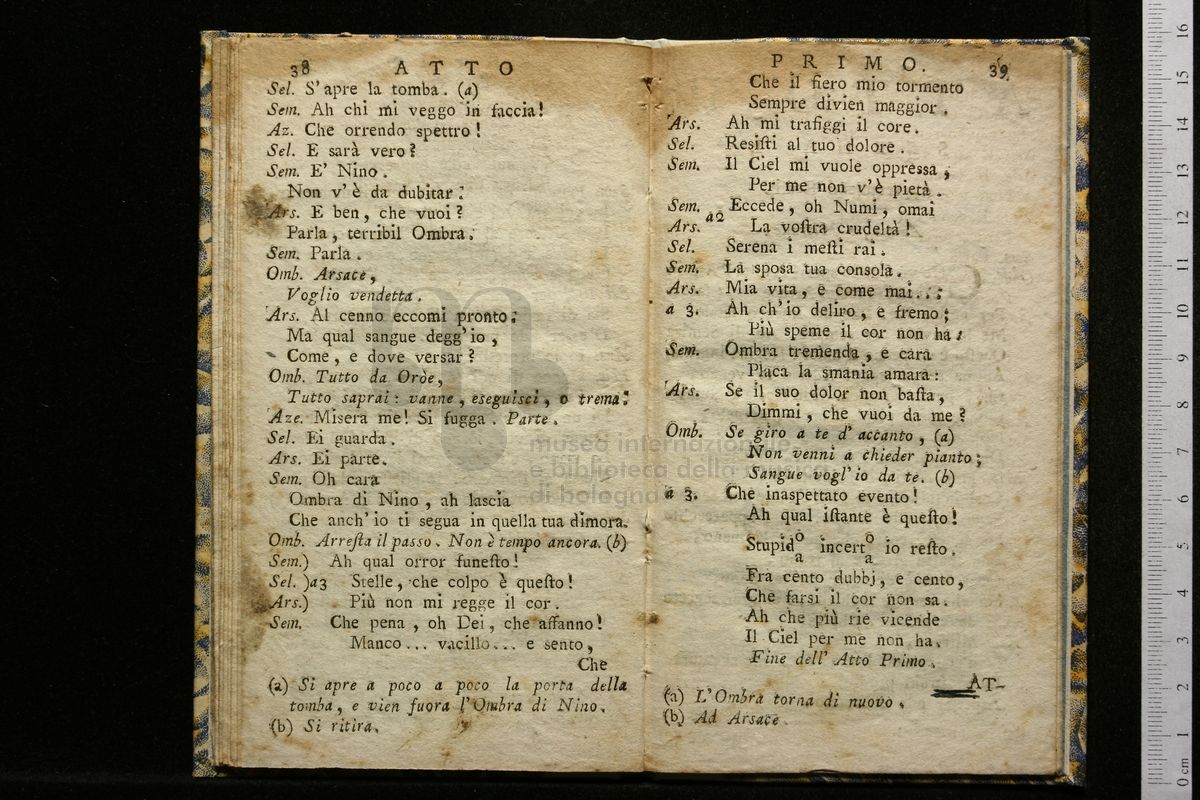 38 ATTO
Sel. S'apre la tomba. (a)
Sem. Ah chi mi veggo in faccia!
Az. Che orrendo spettro!
Sel. E sarà vero?
Sem. E' Nino.
Non v'è da dubitar.
Ars. E ben, che vuoi?
Parla, terribil Ombra.
Sem. Parla.
Omb. Arsace,
Voglio vendetta.
Ars. Al cenno eccomi pronto:
Ma qual sangue degg'io,
Come, e dove versar?
Omb. Tutto da Oròe,
Tutto saprai: vanne, eseguisci, o trema:
Aze. Misera me! Si fugga. Parte.
Sel. Ei guarda.
Ars. Ei parte.
Sem. Oh cara
Ombra di Nino, ah lascia
Che anch'io ti segua in quella tua dimora.
Omb. Arreſta il paſſo. Non è tempo ancora. (b)
Sem.) Ah qual orror funeſto!
Sel. )a3 Stelle, che colpo è queſto!
Ars.) Più non mi regge il cor.
Sem. Che pena, oh Dei, che affanno!
Manco... vacillo... e sento,
Che
(a) Si apre a poco a poco la porta della
tomba, e vien fuora l'Ombra di Nino.
(b) Si ritira.
PRIMO. 39
Che il fiero mio tormento
Sempre divien maggior.
Ars. Ah mi trafiggi il core.
Sel. Reſiſti al tuo dolore.
Sem. Il Ciel mi vuole oppreſſa,
Per me non v'è pietà.
Sem. a2 Eccede, oh Numi, omai
Ars. La voſtra crudeltà!
Sel. Serena i meſti rai.
Sem. La sposa tua consola.
Ars. Mia vita, e come mai...
a 3. Ah ch'io deliro, e fremo;
Più speme il cor non ha:
Sem. Ombra tremenda, e cara
Placa la smania amara:
Ars. Se il suo dolor non baſta,
Dimmi, che vuoi da me?
Omb. Se giro a te d'accanto, (a)
Non venni a chieder pianto;
Sangue vogl'io da te. (b)
a 3. Che inaspettato evento!
Ah qual iſtante è queſto!
Stupid o/a incert o/a io reſto.
Fra cento dubbj, e cento,
Che farsi il cor non sa.
Ah che più rie vicende
Il Ciel per me non ha.
Fine dell' Atto Primo.
AT-
(a) L'Ombra torna di nuovo.
(b) Ad Arsace.
museo internazionale
e biblioteca della musica
di bologna
16
15
14
13
12
11
10
9
8
7
6
5
4
3
2
1
0 cm